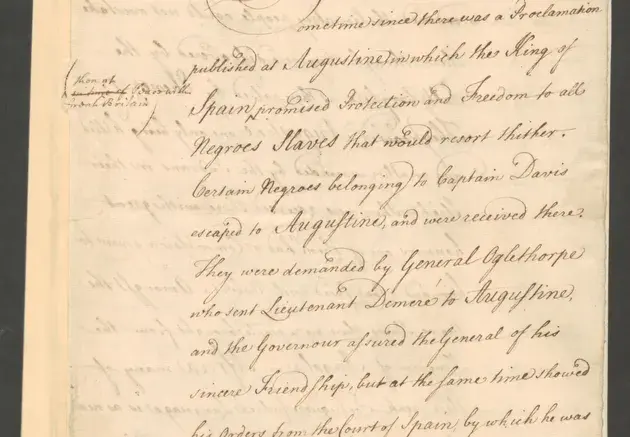 ometime since there was a Proclamation
published at Augustine in which the King of
Spain promised Protection and Freedom to all
Negroes Slaves that would resort thither.
Certain Negroes belonging to Captain Davis
escaped to Augustine, and were received there.
They were demanded by General Oglethorpe
who sent Lieutenant Demeré to Augustine,
and the Governour assured the General of his
sincere Friendship, but at the same time showed
his Orders from the Court of Spain, by which he was
at
Peace with
Britain)